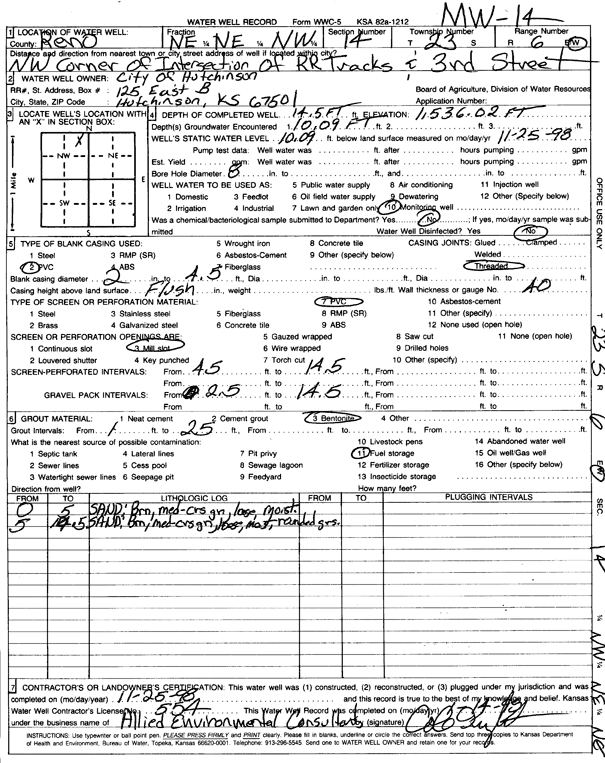 WATER WELL RECORD Form WWC-5 KSA 82a-1212 MW-14
1 LOCATION OF WATER WELL: Fraction Section Number Township Number Range Number
County: Reno NE ¼ NE ¼ NW ¼ 14 T 23 S R 6 E/W
Distance and direction from nearest town or city street address of well if located within city?
NW Corner of Intersection of RR Tracks & 3rd Street
2 WATER WELL OWNER: City of Hutchinson
RR#, St. Address, Box # : 125 East B Board of Agriculture, Division of Water Resources
City, State, ZIP Code : Hutchinson, KS 67501 Application Number:
3 LOCATE WELL'S LOCATION WITH AN "X" IN SECTION BOX:
N
X
NW NE
W E
SW SE
S
1 Mile
4 DEPTH OF COMPLETED WELL 14.5 FT ELEVATION: 1,536.02 FT
Depth(s) Groundwater Encountered 1. 10.09 FT ft. 2. ft. 3. ft.
WELL'S STATIC WATER LEVEL 10.09 ft. below land surface measured on mo/day/yr 11-25-98
Pump test data: Well water was ft. after hours pumping gpm
Est. Yield gpm: Well water was ft. after hours pumping gpm
Bore Hole Diameter 8 in. to ft., and in. to ft.
WELL WATER TO BE USED AS: 5 Public water supply 8 Air conditioning 11 Injection well
1 Domestic 3 Feedlot 6 Oil field water supply 9 Dewatering 12 Other (Specify below)
2 Irrigation 4 Industrial 7 Lawn and garden only 10 Monitoring well
Was a chemical/bacteriological sample submitted to Department? Yes No ; If yes, mo/day/yr sample was submitted
Water Well Disinfected? Yes No
5 TYPE OF BLANK CASING USED: 5 Wrought iron 8 Concrete tile CASING JOINTS: Glued Clamped
1 Steel 3 RMP (SR) 6 Asbestos-Cement 9 Other (specify below) Welded
2 PVC 4 ABS 7 Fiberglass Threaded
Blank casing diameter 2 in. to 4.5 ft., Dia in. to ft., Dia in. to ft.
Casing height above land surface Flush in., weight lbs./ft. Wall thickness or gauge No. 40
TYPE OF SCREEN OR PERFORATION MATERIAL: 7 PVC 10 Asbestos-cement
1 Steel 3 Stainless steel 5 Fiberglass 8 RMP (SR) 11 Other (specify)
2 Brass 4 Galvanized steel 6 Concrete tile 9 ABS 12 None used (open hole)
SCREEN OR PERFORATION OPENINGS ARE: 5 Gauzed wrapped 8 Saw cut 11 None (open hole)
1 Continuous slot 3 Mill slot 6 Wire wrapped 9 Drilled holes
2 Louvered shutter 4 Key punched 7 Torch cut 10 Other (specify)
SCREEN-PERFORATED INTERVALS: From 4.5 ft. to 14.5 ft., From ft. to ft.
From ft. to ft., From ft. to ft.
GRAVEL PACK INTERVALS: From 2.5 ft. to 14.5 ft., From ft. to ft.
From ft. to ft., From ft. to ft.
6 GROUT MATERIAL: 1 Neat cement 2 Cement grout 3 Bentonite 4 Other
Grout Intervals: From 1 ft. to 2.5 ft., From ft. to ft., From ft. to ft.
What is the nearest source of possible contamination: 10 Livestock pens 14 Abandoned water well
1 Septic tank 4 Lateral lines 7 Pit privy 11 Fuel storage 15 Oil well/Gas well
2 Sewer lines 5 Cess pool 8 Sewage lagoon 12 Fertilizer storage 16 Other (specify below)
3 Watertight sewer lines 6 Seepage pit 9 Feedyard 13 Insecticide storage
Direction from well? How many feet?
FROM TO LITHOLOGIC LOG FROM TO PLUGGING INTERVALS
0 5 SAND: Brn, med-crs gn, lose, moist.
5 14.5 SAND: Brn, med-crs gn, lose, moist, rounded grs.
7 CONTRACTOR'S OR LANDOWNER'S CERTIFICATION: This water well was (1) constructed, (2) reconstructed, or (3) plugged under my jurisdiction and was
completed on (mo/day/year) 11-25-98 and this record is true to the best of my knowledge and belief. Kansas
Water Well Contractor's License No. 554 This Water Well Record was completed on (mo/day/yr)
under the business name of Allied Environmental Consultants (signature)
INSTRUCTIONS: Use typewriter or ball point pen. PLEASE PRESS FIRMLY and PRINT clearly. Please fill in blanks, underline or circle the correct answers. Send top three copies to Kansas Department
of Health and Environment, Bureau of Water, Topeka, Kansas 66620-0001. Telephone: 913-296-5545. Send one to WATER WELL OWNER and retain one for your records.
OFFICE USE ONLY
T 23 S R 6 E/W SEC. 14 ¼ NE ¼ NE ¼